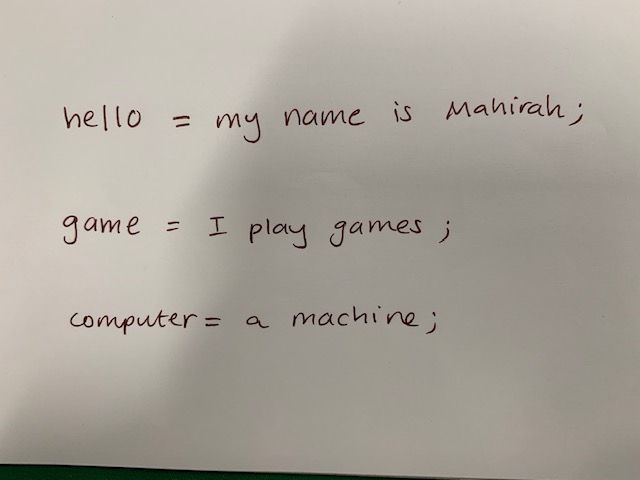 hello = my name is Mahirah;
game = I play games;
computer = a machine;